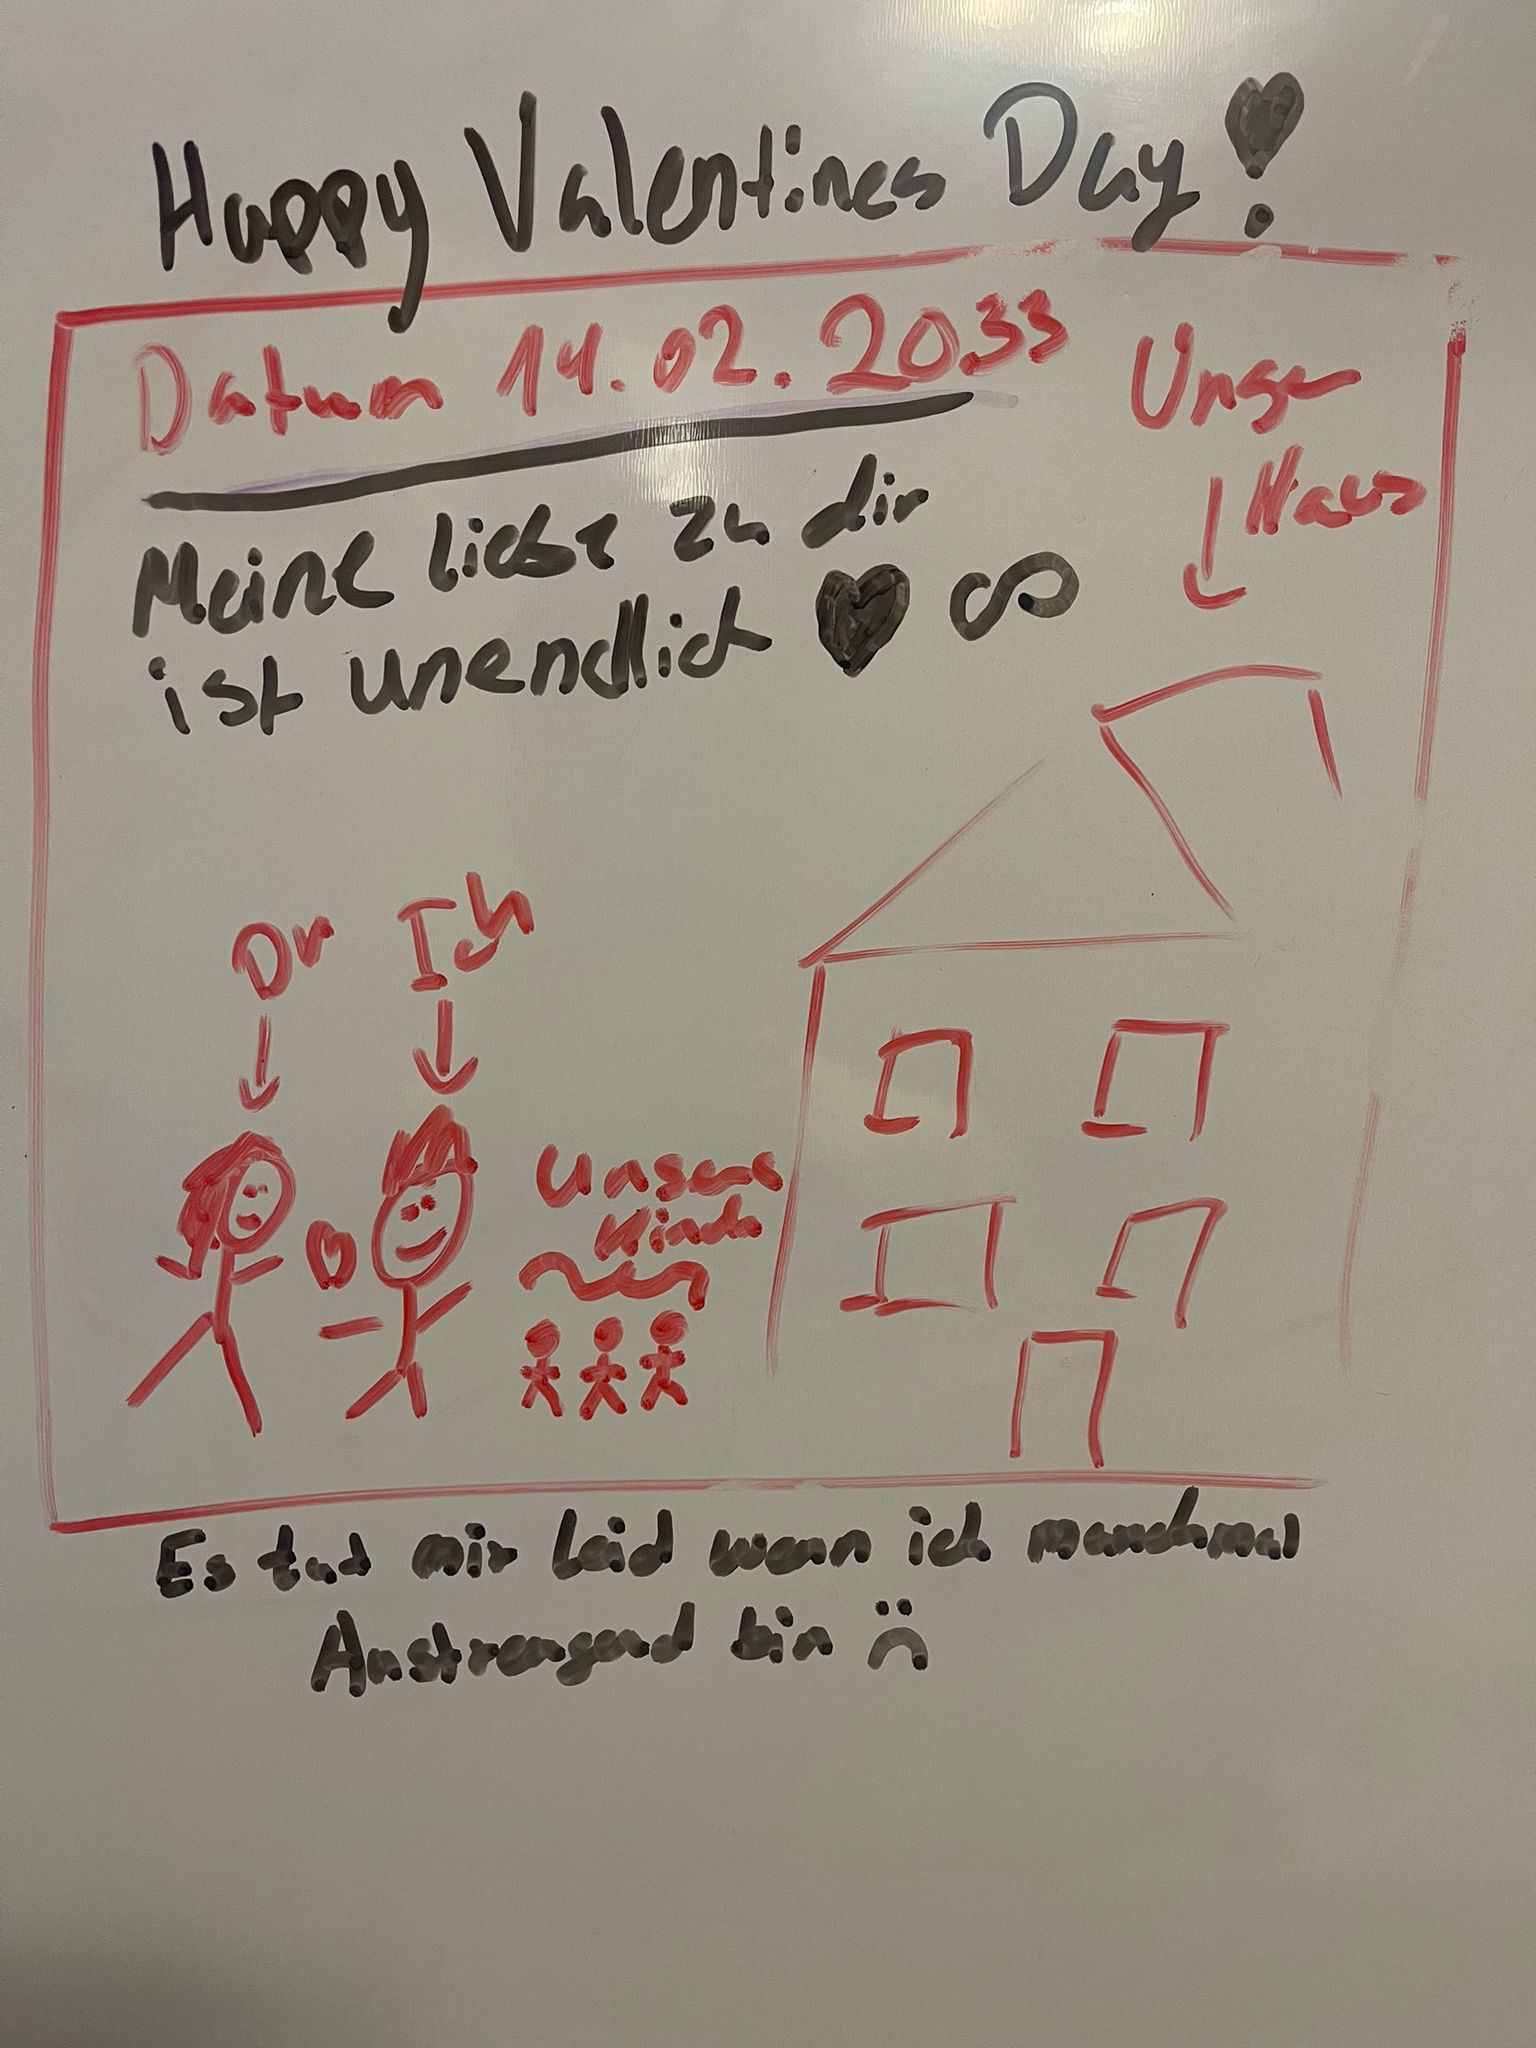 Happy Valentines Day!
Datum 14.02.2033
Unser
Haus
Meine liebe zu dir
ist unendlich ♥ ∞
Du
Ich
Unsere
Kinder
Es tut mir leid wenn ich manchmal
Anstrengend bin :(